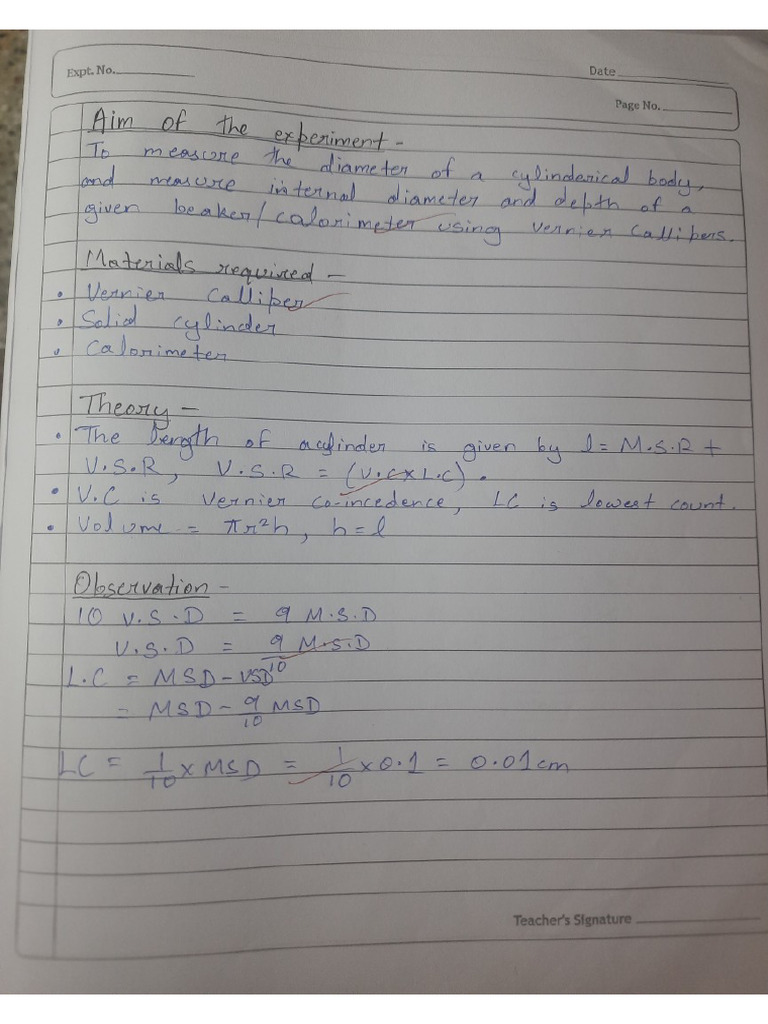 Expt. No.
Date
Page No.
Aim of the experiment -
To measure the diameter of a cylinderical body,
and measure internal diameter and depth of a
given beaker/calorimeter using vernier callipers.
Materials required -
• Vernier Calliper
• Solid cylinder
• Calorimeter
Theory -
• The length of a cylinder is given by l = M.S.R +
V.S.R, V.S.R = (V.C x L.C).
• V.C is vernier co-incedence, LC is lowest count.
• Volume = πr²h, h = l
Observation -
10 V.S.D = 9 M.S.D
V.S.D = 9/10 M.S.D
L.C = MSD - VSD
= MSD - 9/10 MSD
LC = 1/10 x MSD = 1/10 x 0.1 = 0.01cm
Teacher's Signature